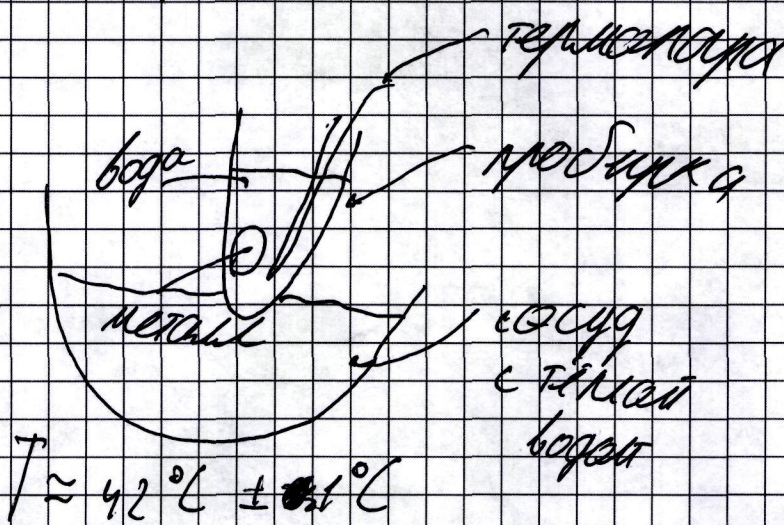 термопара
вода
пробирка
металл
сосуд
с тёплой
водой
T ≈ 42°C ± 1°C